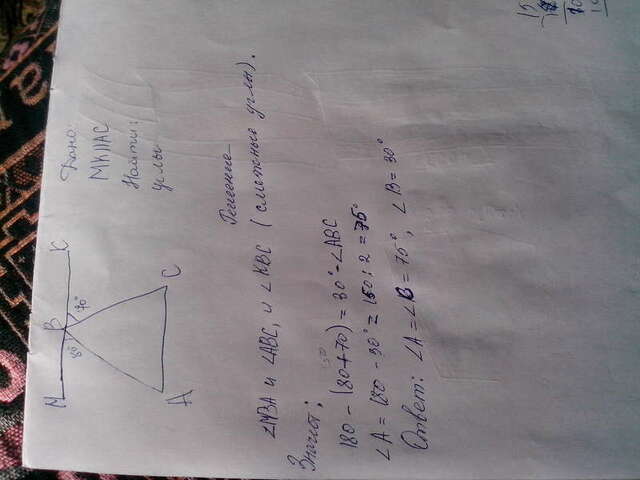 M B K
80° 70°
A C
Дано:
MK||AC
Найти:
углы
Решение
∠MBA и ∠ABC, и ∠KBC (смежные углы).
Значит:
180 - (80+70) = 30° - ∠ABC
∠A = 180 - 30° = 150 : 2 = 75°
Ответ: ∠A = ∠B = 75°, ∠B = 30°